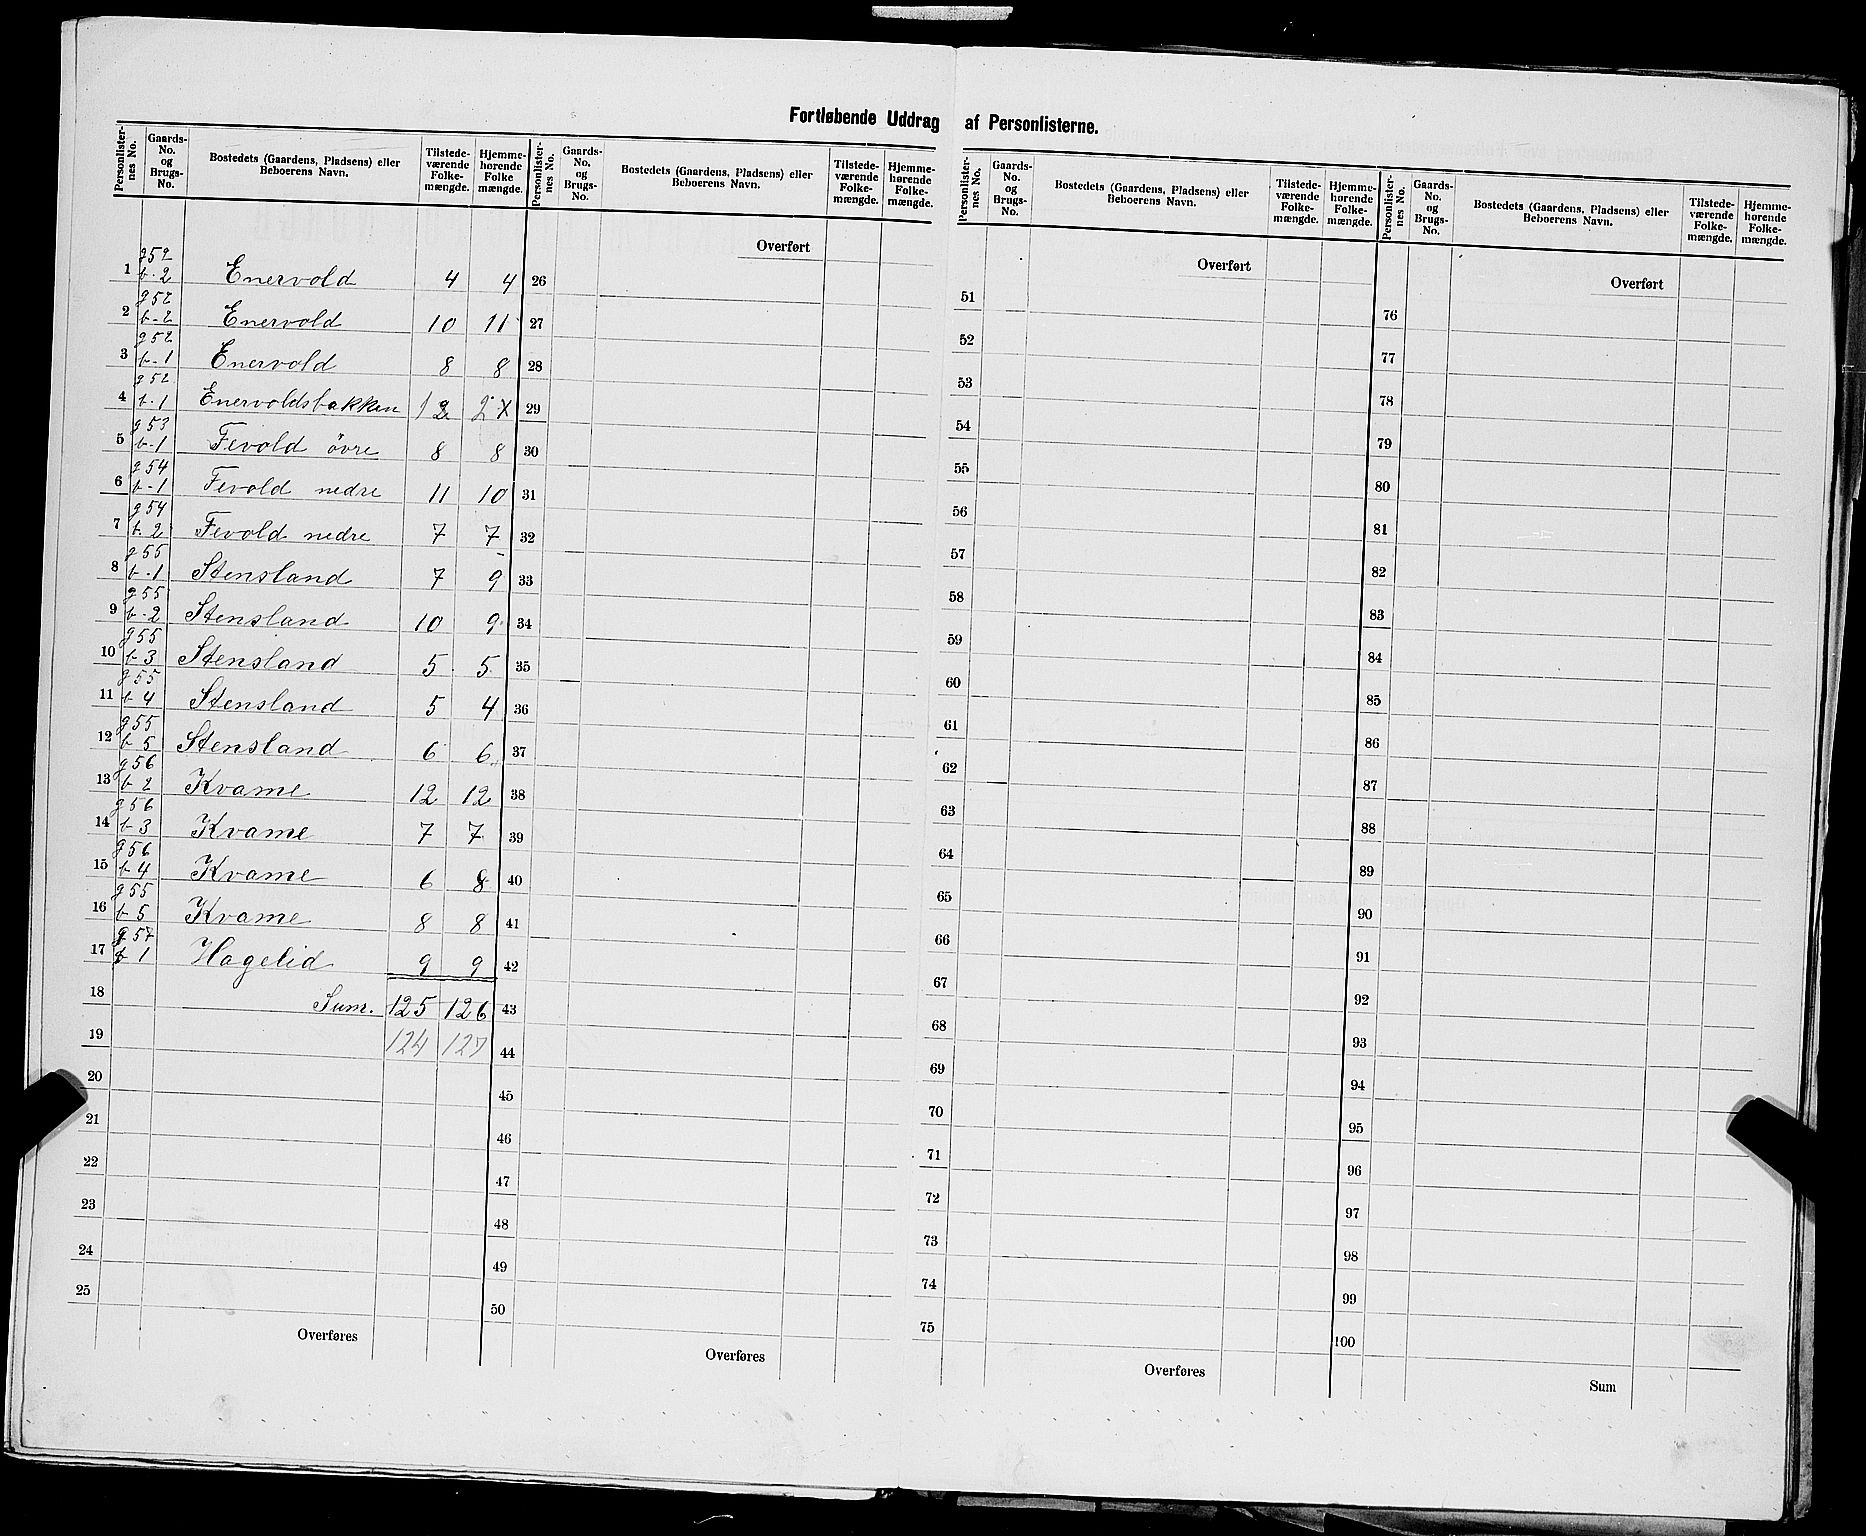 Fortløbende Uddrag af Personlisterne.
Personlister- nes No. | Gaards- No. og Brugs- No. | Bostedets (Gaardens, Pladsens) eller Beboerens Navn. | Tilstede- værende Folke- mængde. | Hjemme- hørende Folke mængde.
1 | g 52 b. 2 | Enervold | 4 | 4
2 | g 52 b-2 | Enervold | 10 | 11
3 | g 52 b-1 | Enervold | 8 | 8
4 | g 52 b-1 | Enervoldsbakken | 1 2 | 2 X
5 | g 53 b-1 | Fevold övre | 8 | 8
6 | g 54 b-1 | Fevold nedre | 11 | 10
7 | g 54 b. 2 | Fevold nedre | 7 | 7
8 | g 55 b-1 | Stensland | 7 | 9
9 | g 55 b-2 | Stensland | 10 | 9
10 | g 55 b 3 | Stensland | 5 | 5
11 | g 55 b 4 | Stensland | 5 | 4
12 | g 55 b 5 | Stensland | 6 | 6
13 | g 56 b 2 | Kvame | 12 | 12
14 | g 56 b-3 | Kvame | 7 | 7
15 | g 56 b 4 | Kvame | 6 | 8
16 | g 55 b 5 | Kvame | 8 | 8
17 | g 57 b 1 | Hagelid | 9 | 9
18 | Sum. | 125 | 126
19 | 124 | 127
20
21
22
23
24
25
Overføres
Personlister- nes No. | Gaards- No. og Brugs- No. | Bostedets (Gaardens, Pladsens) eller Beboerens Navn. | Tilstede- værende Folke- mængde. | Hjemme- hørende Folke- mængde.
Overført
26
27
28
29
30
31
32
33
34
35
36
37
38
39
40
41
42
43
44
45
46
47
48
49
50
Overføres
Personlister- nes No. | Gaards- No. og Brugs- No. | Bostedets (Gaardens, Pladsens) eller Beboerens Navn. | Tilstede- værende Folke- mængde. | Hjemme- hørende Folke- mængde.
Overført
51
52
53
54
55
56
57
58
59
60
61
62
63
64
65
66
67
68
69
70
71
72
73
74
75
Overføres
Personlister- nes No. | Gaards- No. og Brugs- No. | Bostedets (Gaardens, Pladsens) eller Beboerens Navn. | Tilstede- værende Folke- mængde. | Hjemme- hørende Folke- mængde.
Overført
76
77
78
79
80
81
82
83
84
85
86
87
88
89
90
91
92
93
94
95
96
97
98
99
100
Sum